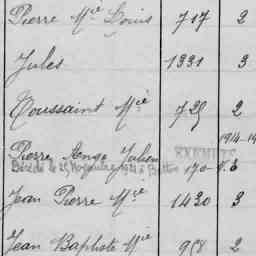 Pierre Mie Louis 717 2
Jules 1331 3
Toussaint Mie 725 2
1914-19
Pierre Ange Julien EXEMPTÉ
Décédé le 25 Novembre 1921 à 170
Jean Pierre Mie 1430 3
Jean Baptiste Mie 958 2